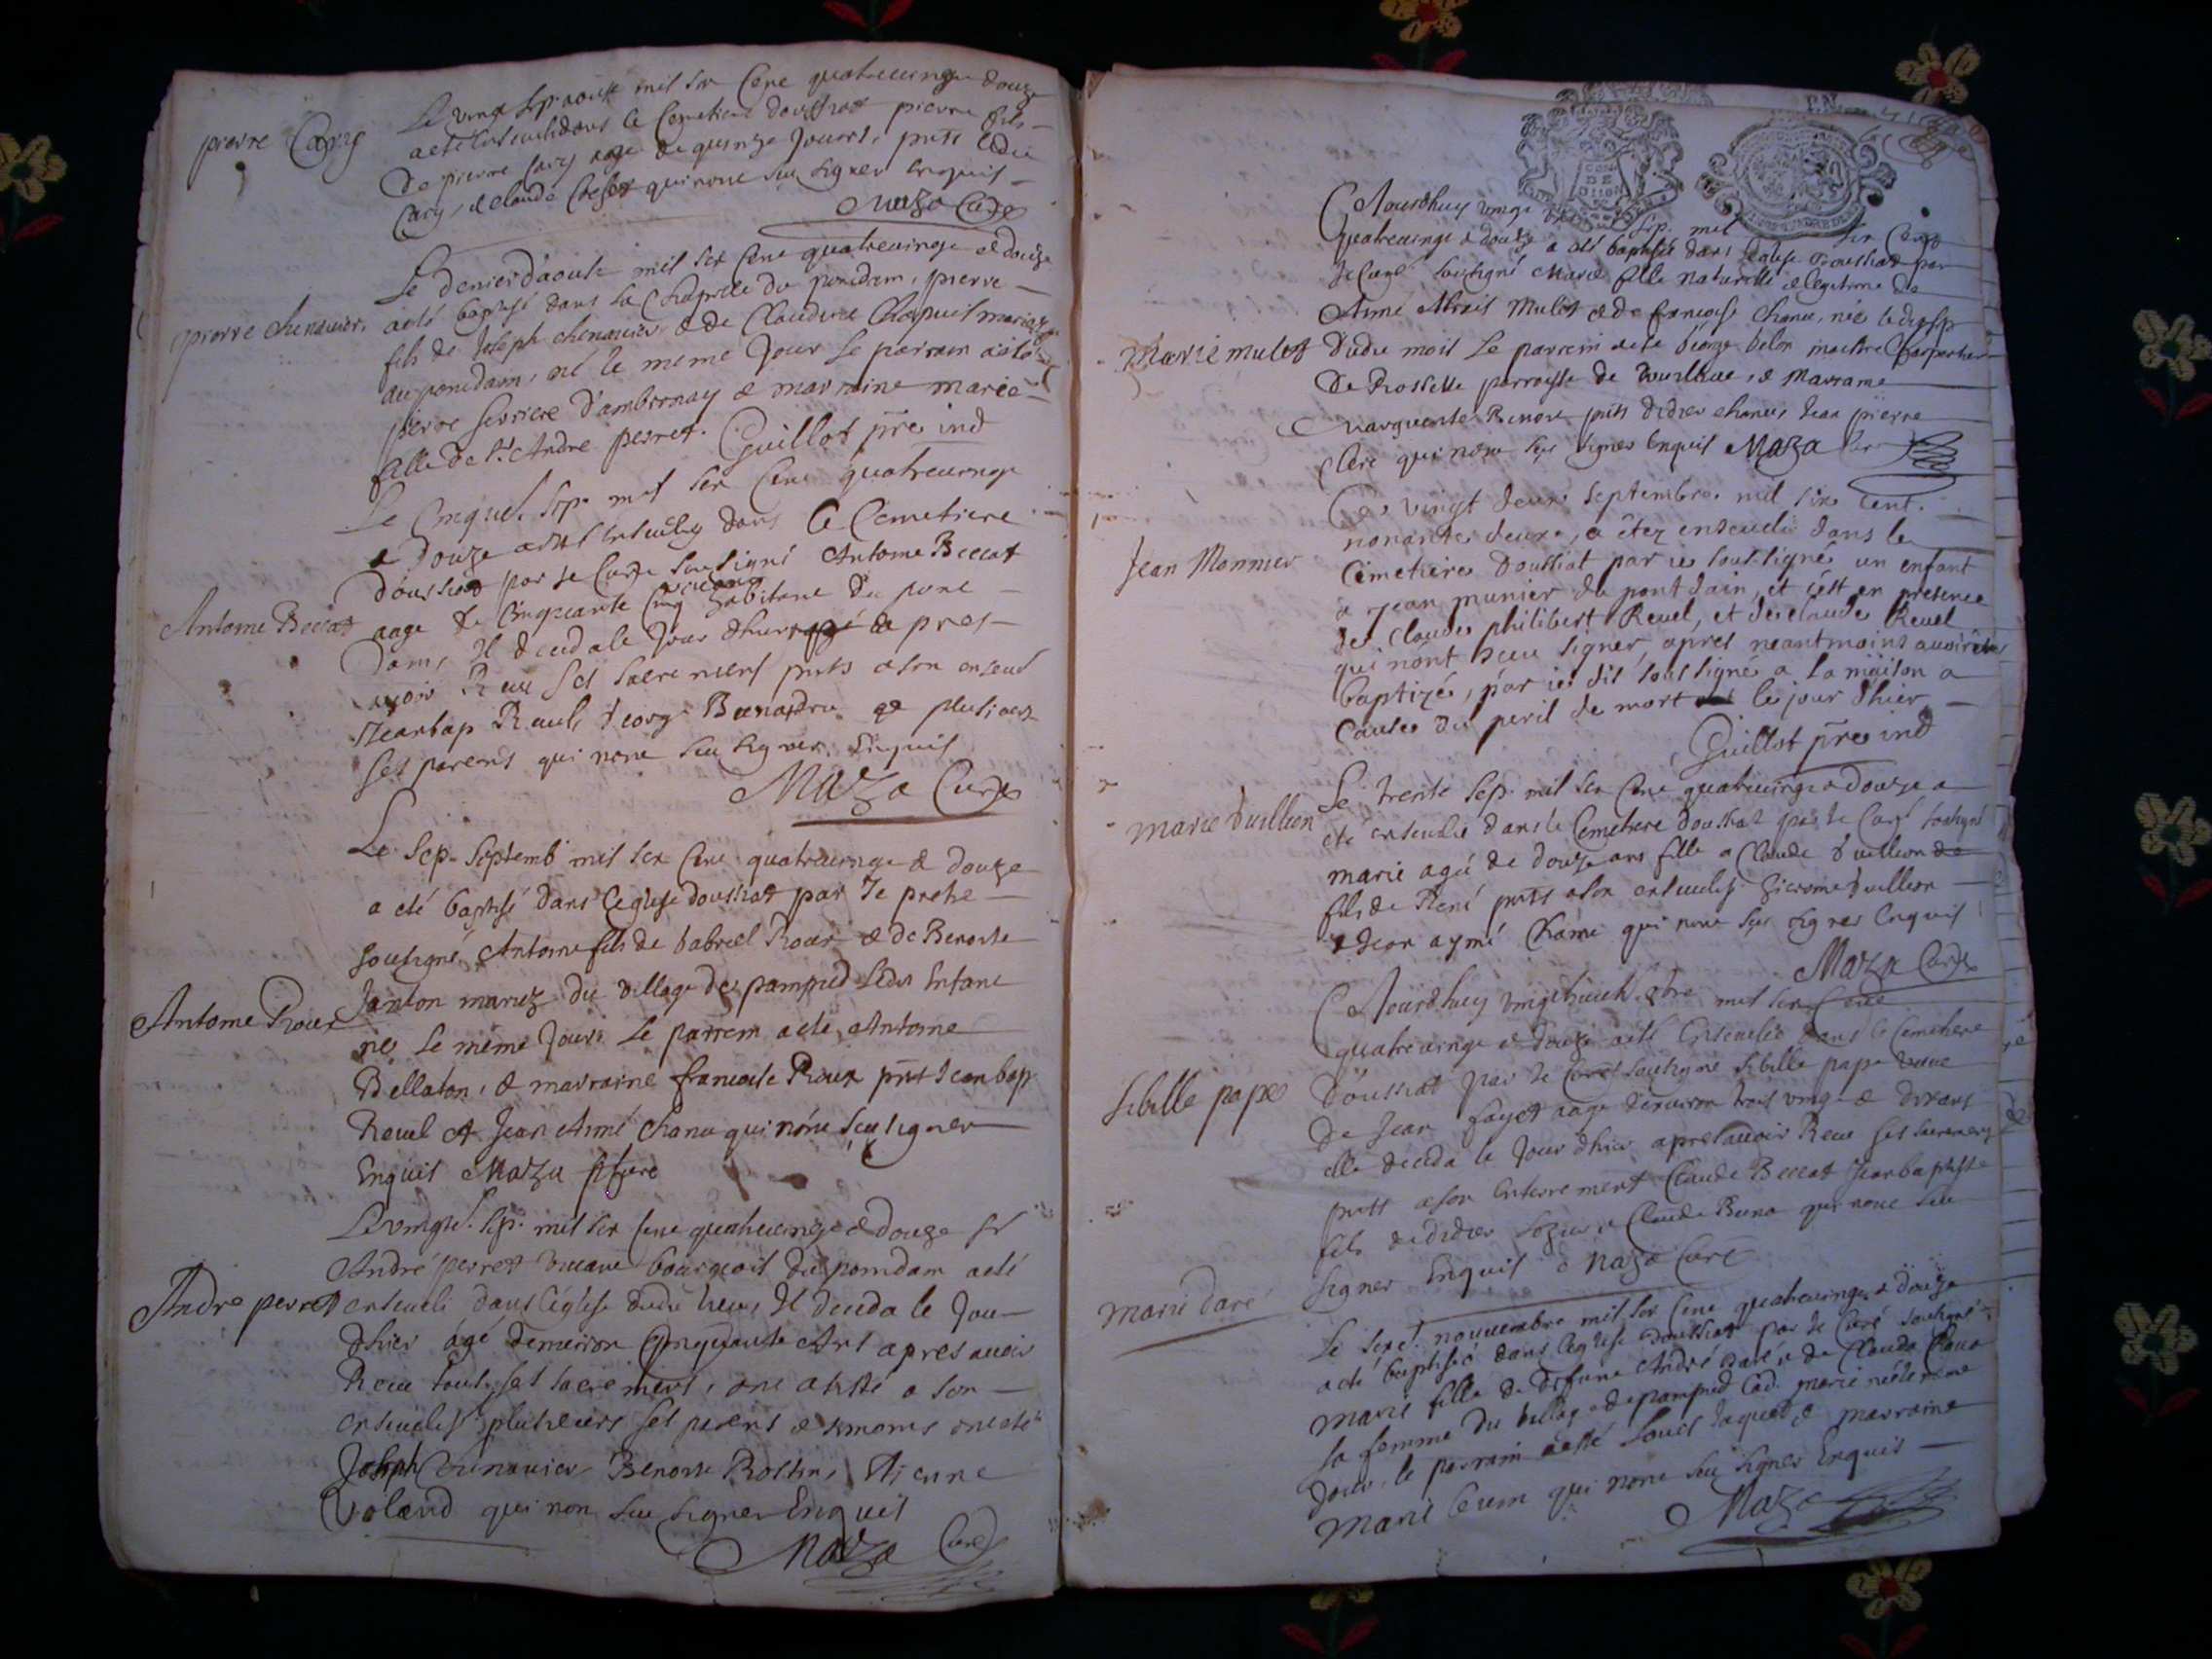 pierre Cary
Le vingt sep aoust mil six Cent quatrevingt douze
a eté enseueli dans le Cemetiere doussiat pierre fils
de pierre Cary age de quinze Jours, pnts ledit
Cary, et claude qui nont sceu signer Enquis
Maza Curé
pierre chenauier
Le denier d'aoust mil six Cent quatrevingt et douze
a eté baptisé dans la Chapelle du pontdam, pierre
fils de Joseph chenauier & de Claudine Chapuis mariez
au pontdam, né le meme Jour le parrain a eté
pierre serriere d'ambornay & marraine marie
fille de Sr André perret. Guillot pre ind
Antoine Beccat
Le Cinque. Sep. mil six Cent quatrevingt
& douze a eté enseuely dans le Cemetiere
doussiat par Je Curé soussigné Antoine Beccat
aage de Cinquante Cinq habitant du pont
dam, Il deceda le Jour d'hier apres
auoir Receu ses sacrements pnts a son enseu
Jeanbap Reuel, george & plusieurs
ses parents qui nont sceu signer. Enquis
Maza Curé
Le Sep. Septemb mil six Cent quatrevingt & douze
a eté baptisé dans leglise doussiat par Je pretre
Antoine Roux
soussigné Antoine fils de gabriel Roux & de Benoite
Janton mariez du village de pampied ledit Enfant
né le méme Jour, le parrein a eté, Antoine
Bellaton, & marraine francoise Roux pnt Jeanbap
Reuel & Jean Aimé Chanu qui nont sceu signer
Enquis Maza Curé
Andre perret
Le vingte. Sep. mil six Cent quatrevingt & douze Sr
André perret viuant bourgeois du pontdam a eté
enseueli dans léglise dudit lieu, Il deceda le Jour
dhier ágé denuiron Cinquante Ans apres auoir
Receu tous ses sacrements, ont assisté a son
enseueliss. plusieurs ses parens & temoins ont eté
Joseph Chenauier Benoit Rostin, Etienne
Voland qui non sceu signer Enquis
Maza Curé
Marie mulet
CeJourdhuy vingt Sep. mil six Cent
Quatrevingt & douze a eté baptisée dans leglise doussiat par
Je Curé soussigné Marie fille naturelle & legitime de
Aimé Mulet & de francoise Chanu, née le
dudit mois le parrein a eté george belon maitre Charpentier
de Rossette parroisse de & Marraine
Marguerite pnts didier chanu, Jean pierre
Clerc qui nont sceu signer Enquis Maza Curé
Jean Monnier
Ce vingt deux septembre mil six cent
nonante deux, a étez enseueli dans le
Cimetiere doussiat par ie sous-signé un enfant
a Jean munier du pont dain, et c'est en presence
de claude philibert Reuel, et de claude Reuel
qui nont sceu signer, apres neantmoins auoir eté
baptizé, par ie dit sous signé a la maison a
cause du peril de mort le jour dhier,
Guillot pre ind
marie vuillion
Le trente Sep. mil six Cent quatrevingt & douze a
eté enseuelie dans le Cemetiere doussiat par Je Curé soussigné
marie agée de douze ans fille a Claude vuillion
fils de René pnts a son enseueliss. hierome vuillion
& Jean aymé Chanu qui nont sceu signer Enquis
Maza Curé
Sibille pape
CeJourdhuy vingthuict 8bre mil six Cent
quatrevingt & douze a eté enseuelie dans le Cemetiere
doussiat par Je Curé soussigné Sibille pape veuue
de Jean fayet aage denuiron trois vingt & dix ans
elle deceda le Jour dhier apres auoir Receu ses sacremens
pnts a son enterrement Claude Beccat Jeanbaptiste
fils de didier & Claude qui nont sceu
signer Enquis Maza Curé
marie daré
Le Sixe. nouuembre mil six Cent quatrevingt & douze
a eté baptisée dans leglise doussiat par Je Curé soussigné
marie fille de défunt André daré & de Claude
sa femme du village de pampied lad. marie née le meme
Jour, le parrain a esté Louis Jaquet & marraine
marie qui nont sceu signer Enquis
Maza